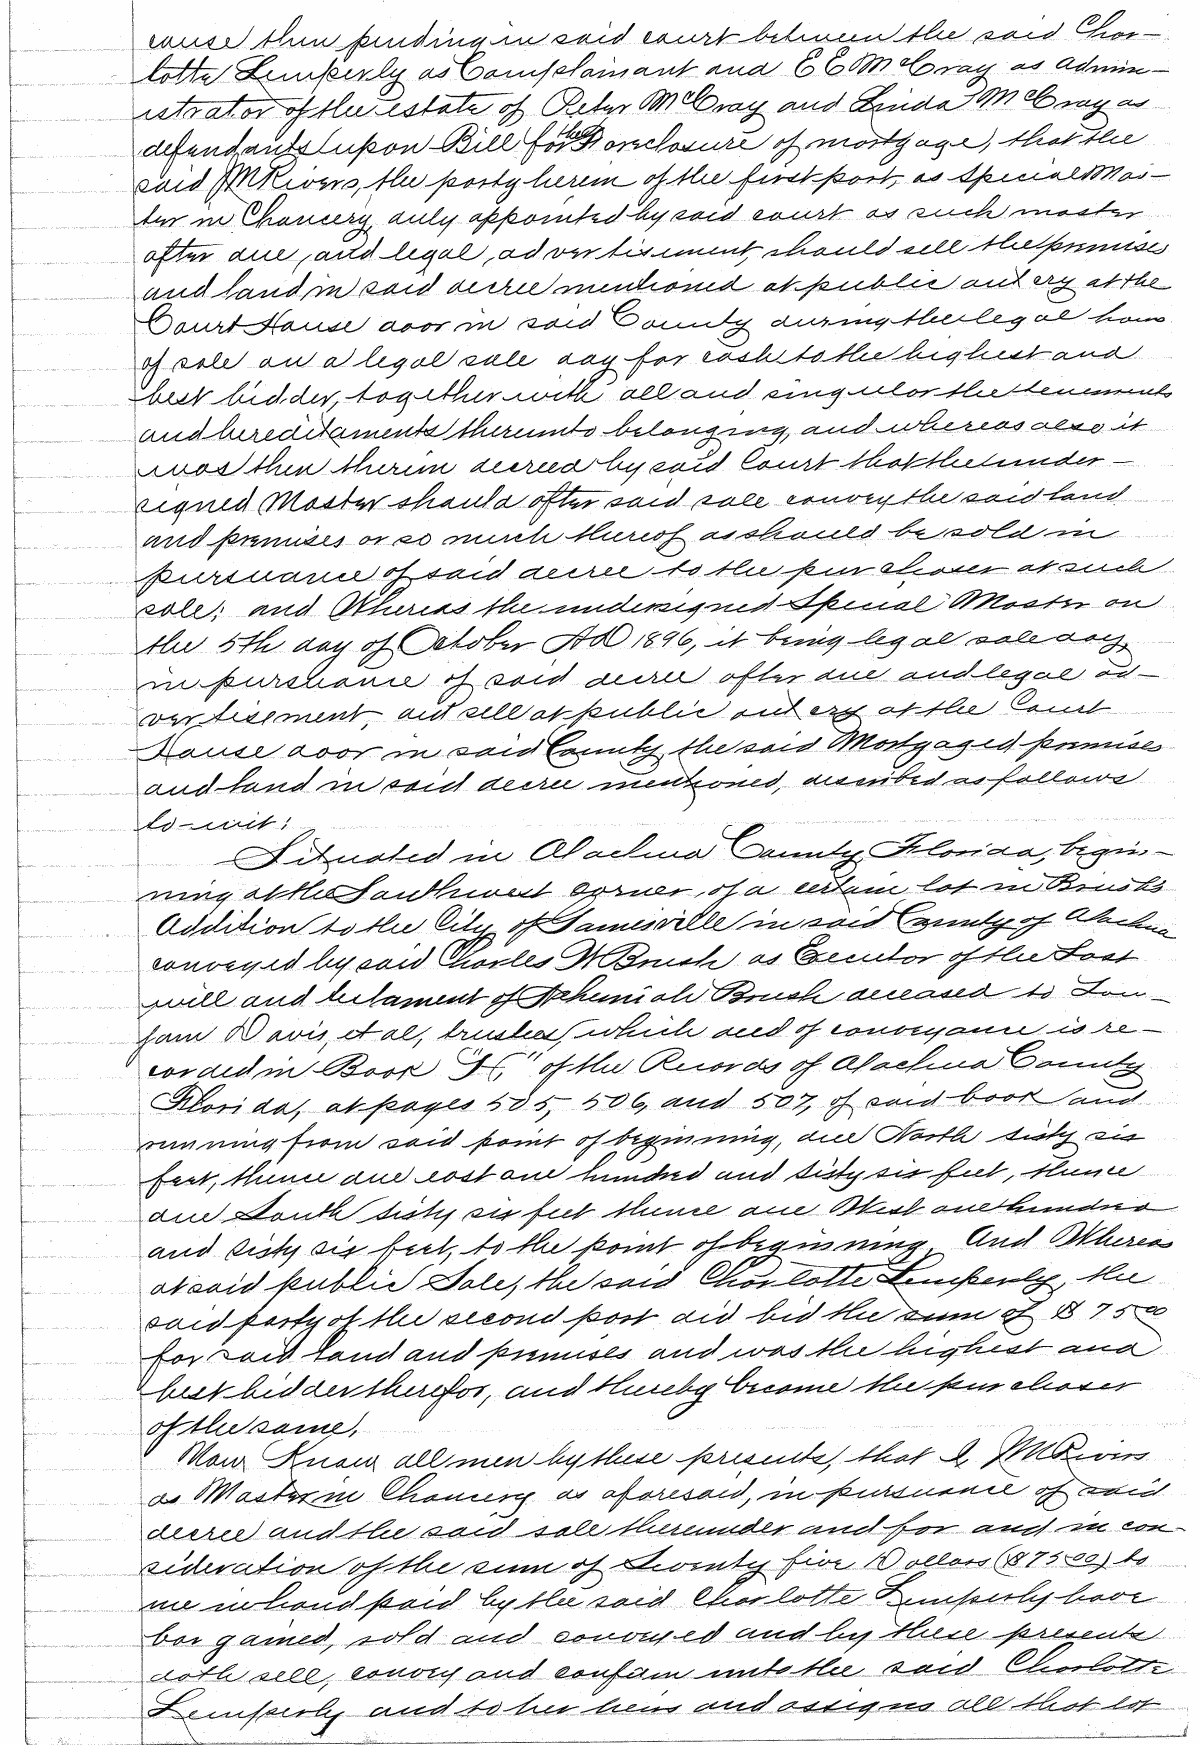 cause then pending in said court between the said Char-
lotte Lemperly as Complainant and E E McCray as admin-
istrator of the estate of Peter McCray and Linda McCray as
defendants upon Bill for the Foreclosure of mortgage, that the
said J M Rivers, the party herein of the first part, as Special Mas-
ter in Chancery, duly appointed by said court as such master
after due, and legal, advertisement, should sell the premises
and land in said decree mentioned at public out cry at the
Court House door in said County during the legal hours
of sale on a legal sale day for cash to the highest and
best bidder, together with all and singular the tenements
and hereditaments thereunto belonging, and whereas also it
was then therein decreed by said Court that the under-
signed Master should after said sale convey the said land
and premises or so much thereof as should be sold in
pursuance of said decree to the purchaser at such
sale; and Whereas the undersigned Special Master on
the 5th day of October AD 1896, it being legal sale day,
in pursuance of said decree after due and legal ad-
vertisement, did sell at public out cry at the Court
House door in said County, the said Mortgaged premises
and land in said decree mentioned, described as follows
to-wit:
Situated in Alachua County, Florida, begin-
ning at the Southwest corner, of a certain lot in Brushs
Addition to the City of Gainesville in said County of Alachua
conveyed by said Charles W Brush as Executor of the Last
will and testament of Nehemiah Brush deceased to
Davis, et al, trustees, which deed of conveyance is re-
corded in Book "H," of the Records of Alachua County
Florida, at pages 505, 506, and 507, of said book and
running from said point of beginning, due North sixty six
feet, thence due east one hundred and sixty six feet, thence
due South sixty six feet thence due West one hundred
and sixty six feet, to the point of beginning, And Whereas
at said public Sale, the said Charlotte Lemperly, the
said party of the second part did bid the sum of $ 75 00
for said land and premises and was the highest and
best bidder therefor, and thereby became the purchaser
of the same.
Now Know all men by these presents, that I, J M Rivers
as Master in Chancery as aforesaid, in pursuance of said
decree and the said sale thereunder and for and in con-
sideration of the sum of Twenty five Dollars ($75 00) to
me in hand paid by the said Charlotte Lemperly have
bargained, sold and conveyed and by these presents
doth sell, convey and confirm unto the said Charlotte
Lemperly and to her heirs and assigns all that lot